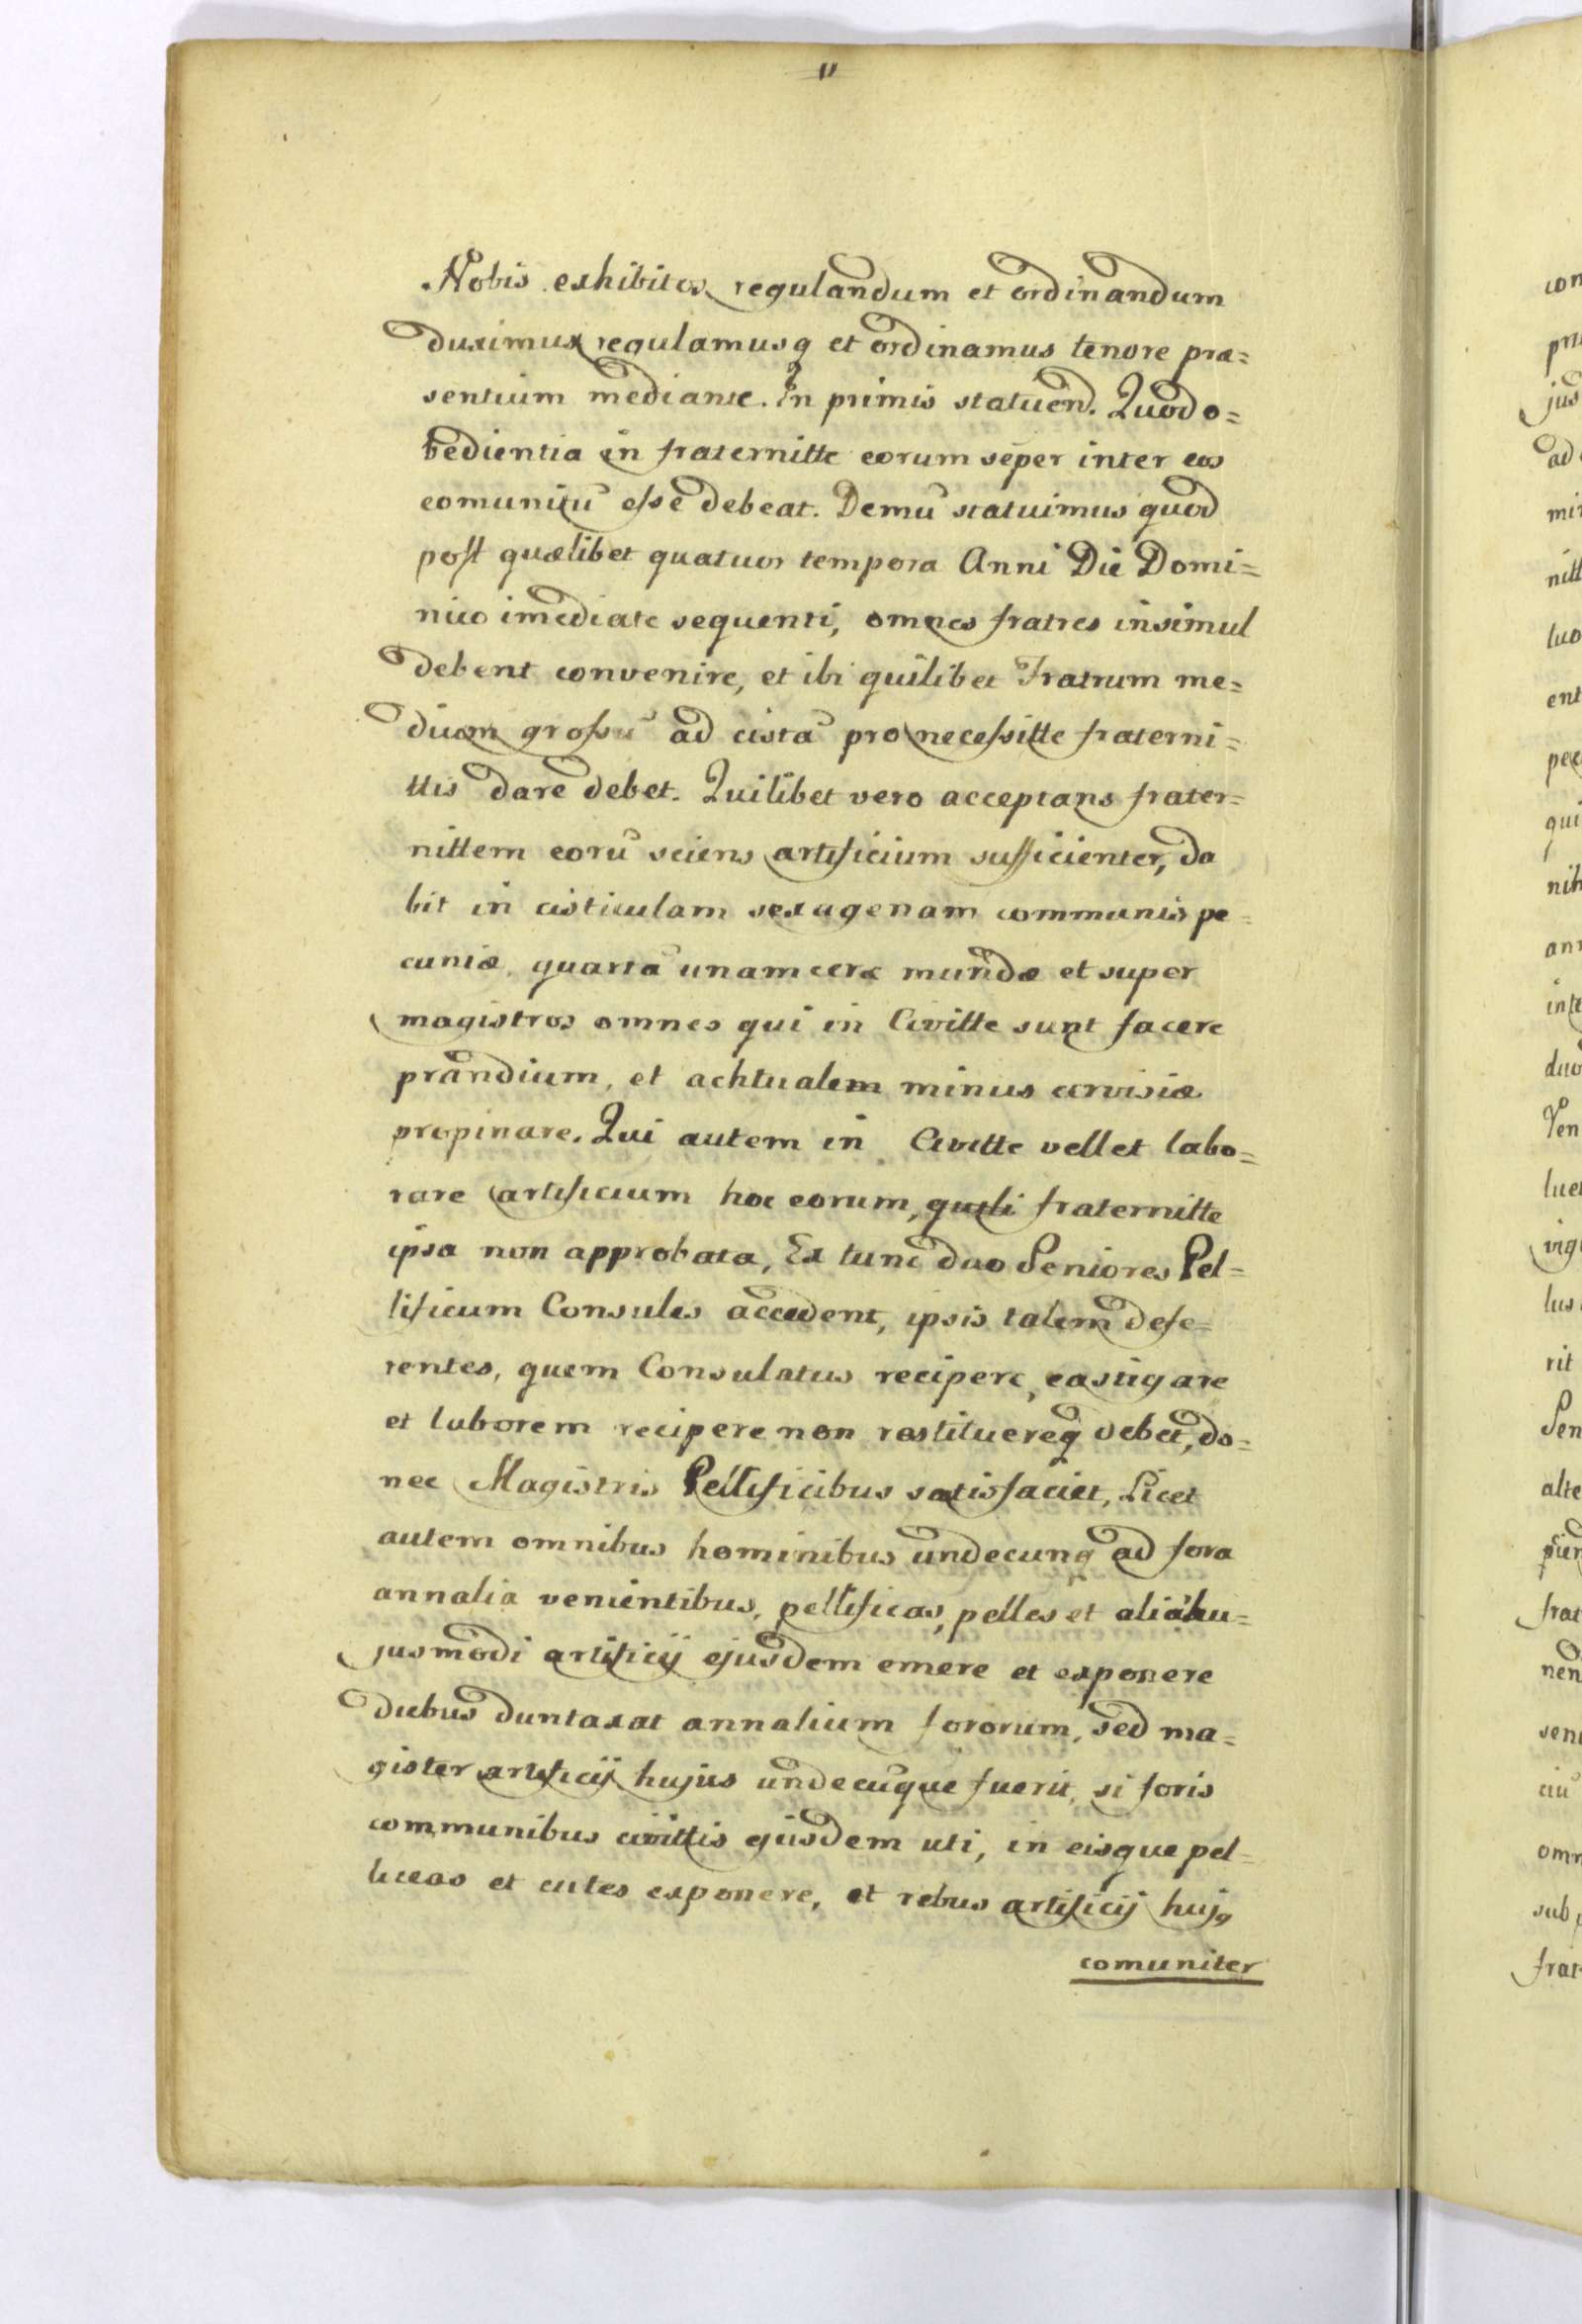 11
Nobis exhibitos regulandum et ordinandum
duximus regulamusq et ordinamus tenore præ=
sentium mediante. In primis statuen̄d. Quod o=
bedientia in fraternitte eorum sēper inter eos
comunitū esse debeat. Demū statuimus quod
post quælibet quatuor tempora Anni Die Domi=
nico imediate sequenti, omnes fratres insimul
debent convenire, et ibi quilibet Fratrum me=
dium grossū ad cistā pro necessitte fraterni=
ttis dare debet. Quilibet vero acceptans frater=
nittem eorū sciens artificium sufficienter, da
bit in cisticulam sexagenam communis pe=
cuniæ, quartā unam ceræ mundæ et super
magistros omnes qui in Civitte sunt facere
prandium, et achtualem minus cervisiæ
propinare. Qui autem in Civitte vellet labo=
rare artificium hoc eorum, quali fraternitte
ipsa non approbata, Ex tunc duo Seniores Pel=
lificum Consules accedent, ipsis talem defe=
rentes, quem Consulatus recipere, castigare
et laborem recipere non restituereq debet, do=
nec Magistris Pellificibus satisfaciet, Licet
autem omnibus hominibus undecunq ad fora
annalia venientibus, pellificas, pelles et alia hu=
jusmodi artificij ejusdem emere et exponere
diebus duntaxat annalium fororum, sed ma=
gister artificij hujus undecūque fuerit, si foris
communibus civittis ejusdem uti, in eisque pel=
liceas et cutes exponere, et rebus artificij huj9
comuniter
con
jus
ad
mi
nitt
luo
ent
pec
qui
nih
ann
inte
duo
Ven
lue
vig
lus
rit
Sen
alte
frat
nen
sen
ciū
omn
sub
frat